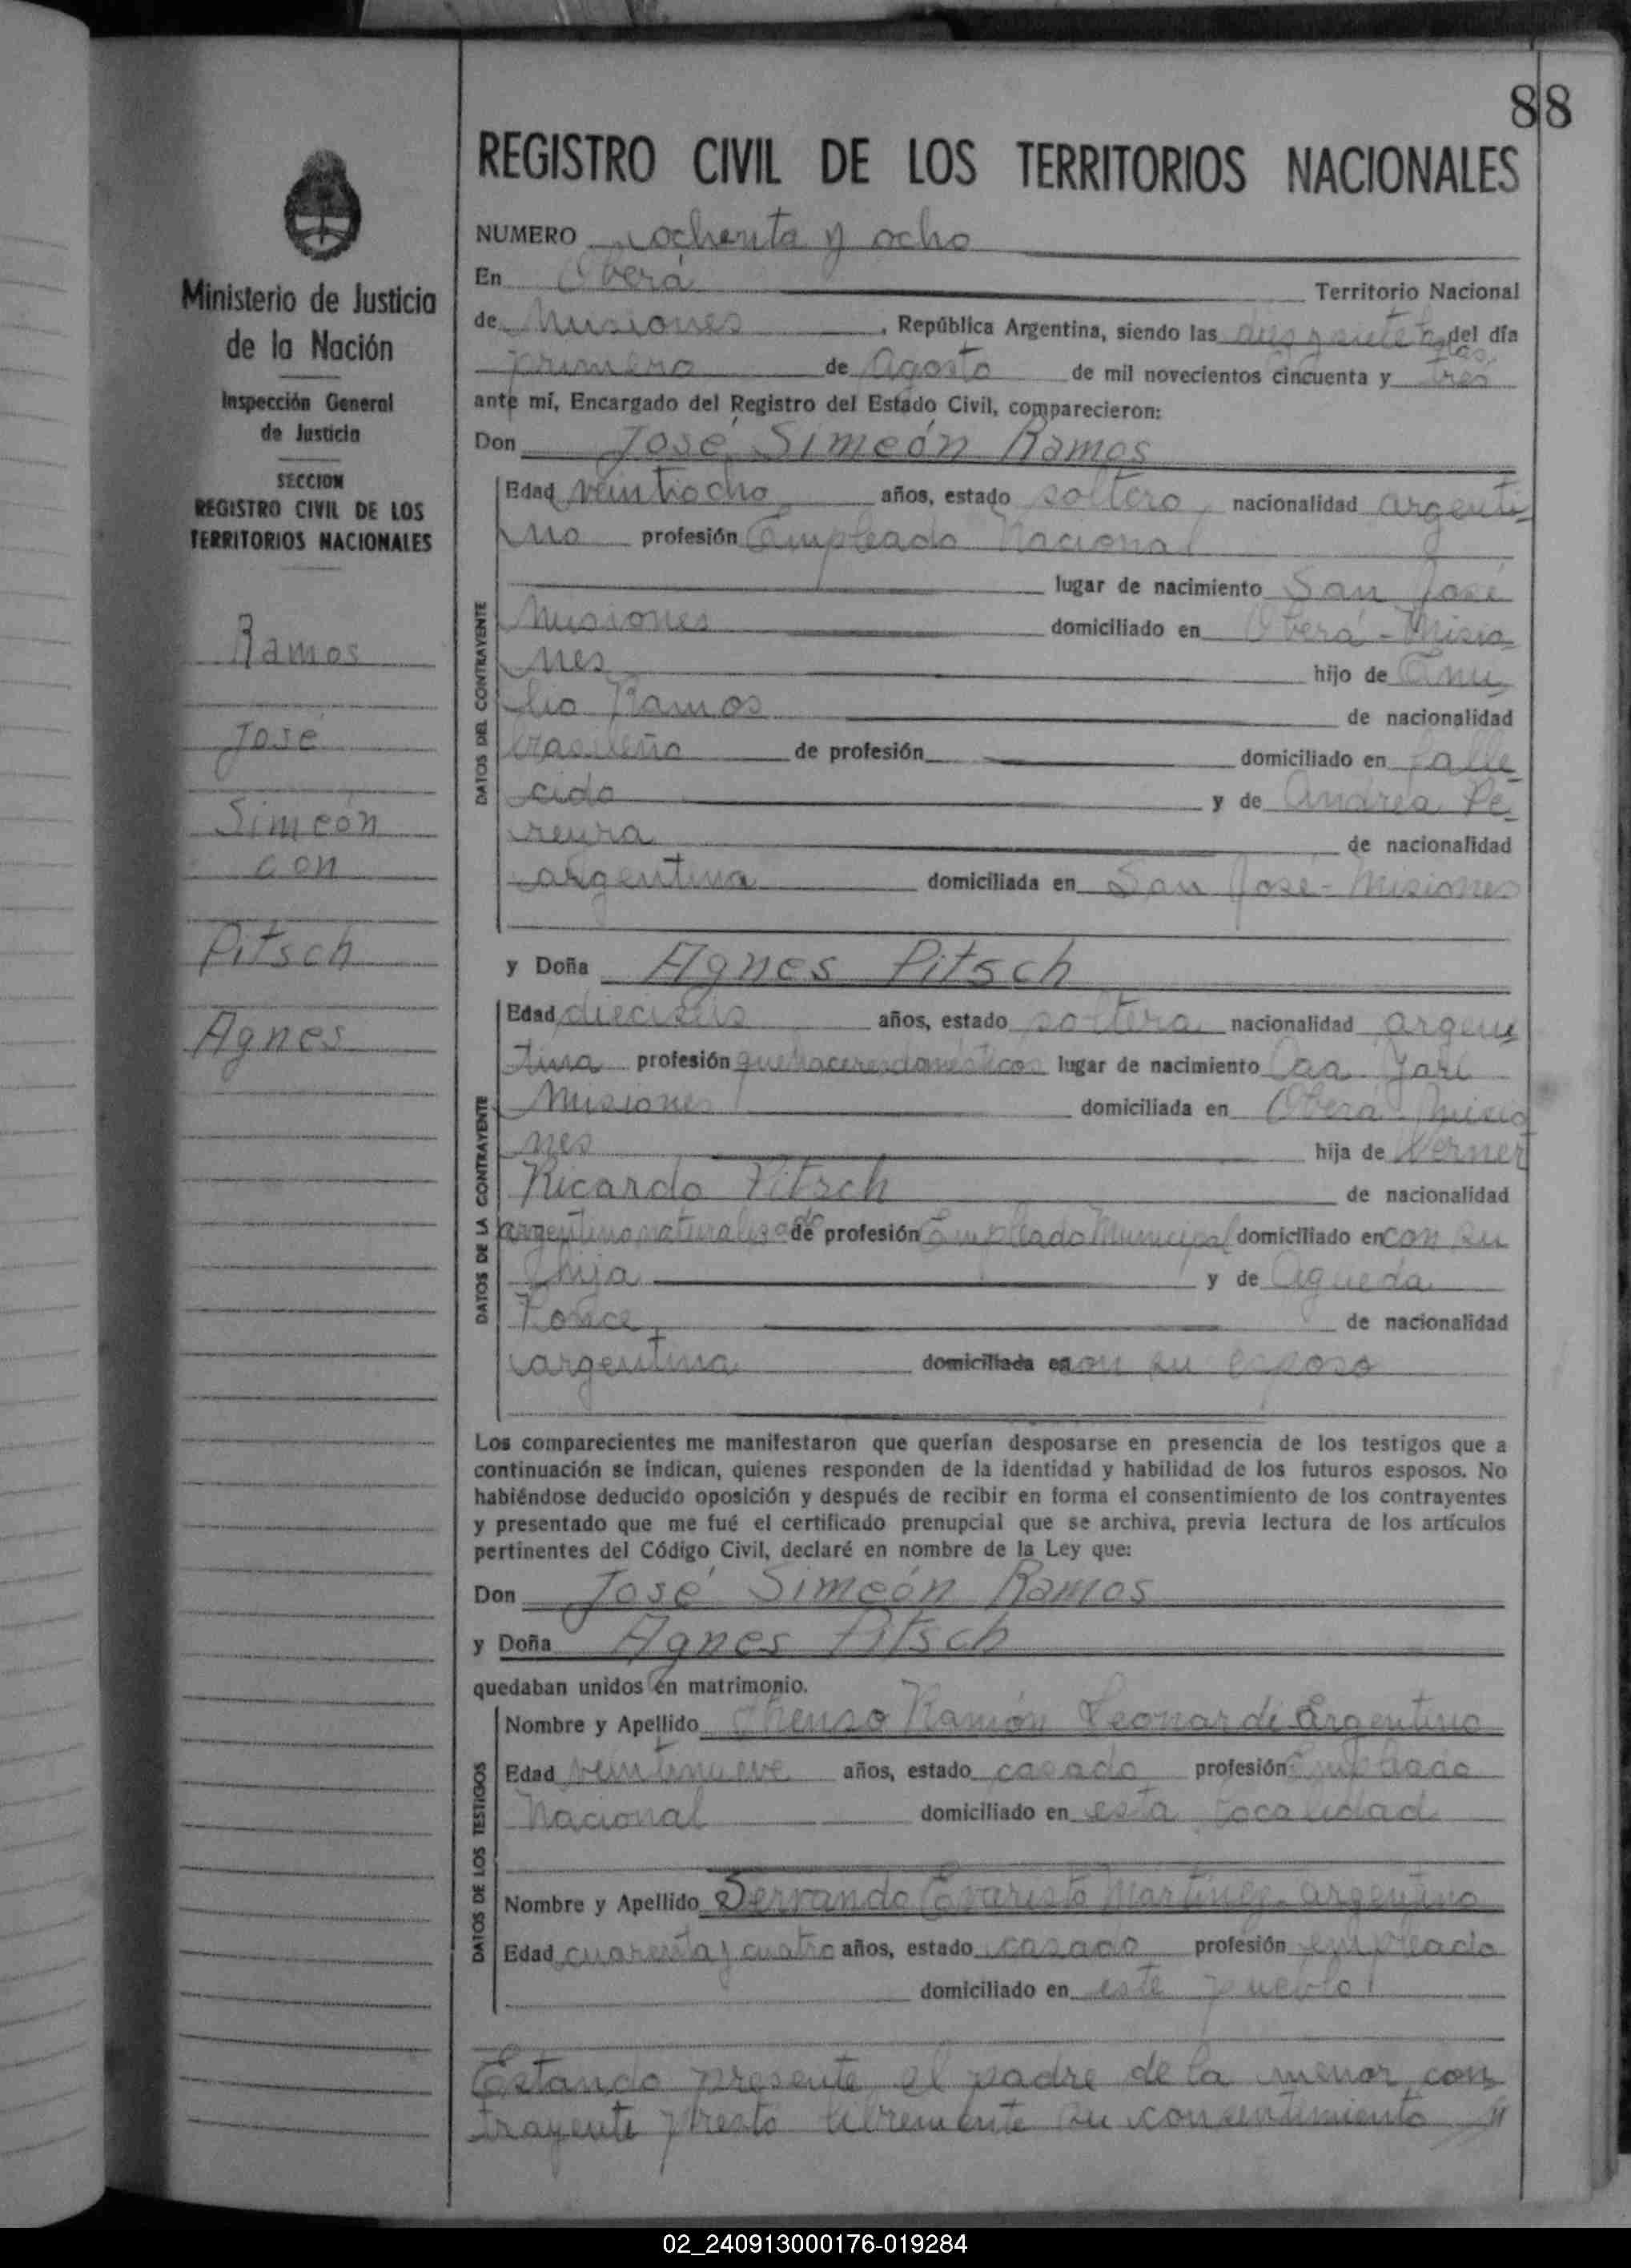 88
REGISTRO CIVIL DE LOS TERRITORIOS NACIONALES
Ministerio de Justicia
de la Nación
Inspección General
de Justicia
SECCION
REGISTRO CIVIL DE LOS
TERRITORIOS NACIONALES
Ramos
José
Simeón
con
Pitsch
Agnes
NUMERO ochenta y ocho
En Oberá Territorio Nacional
de Misiones, República Argentina, siendo las del día
primero de Agosto de mil novecientos cincuenta y tres
ante mí, Encargado del Registro del Estado Civil, comparecieron:
Don José Simeón Ramos
DATOS DEL CONTRAYENTE
Edad veintiocho años, estado soltero, nacionalidad argenti-
no profesión Empleado Nacional
lugar de nacimiento San José
Misiones domiciliado en Oberá - Misio-
nes hijo de
lio Ramos de nacionalidad
brasileño de profesión domiciliado en falle-
cido y de Andrea Pe-
reyra de nacionalidad
argentina domiciliada en San José - Misiones
y Doña Agnes Pitsch
DATOS DE LA CONTRAYENTE
Edad dieciséis años, estado soltera nacionalidad argen-
tina profesión quehaceres domésticos lugar de nacimiento Caa Yarí
Misiones domiciliada en Oberá Misio
nes hija de Werner
Ricardo Pitsch de nacionalidad
argentino naturalizado de profesión Empleado Municipal domiciliado en con su
hija y de Agueda
Ponce de nacionalidad
argentina domiciliada en con su esposo
Los comparecientes me manifestaron que querían desposarse en presencia de los testigos que a
continuación se indican, quienes responden de la identidad y habilidad de los futuros esposos. No
habiéndose deducido oposición y después de recibir en forma el consentimiento de los contrayentes
y presentado que me fué el certificado prenupcial que se archiva, previa lectura de los artículos
pertinentes del Código Civil, declaré en nombre de la Ley que:
Don José Simeón Ramos
y Doña Agnes Pitsch
quedaban unidos en matrimonio.
DATOS DE LOS TESTIGOS
Nombre y Apellido Ramón Leonardi Argentino
Edad veintinueve años, estado casado profesión Empleado
Nacional domiciliado en esta localidad
Nombre y Apellido Servando Evaristo Martínez - argentino
Edad cuarenta y cuatro años, estado casado profesión empleado
domiciliado en este pueblo
Estando presente el padre de la menor con-
trayente presto libremente su consentimiento
02_240913000176-019284